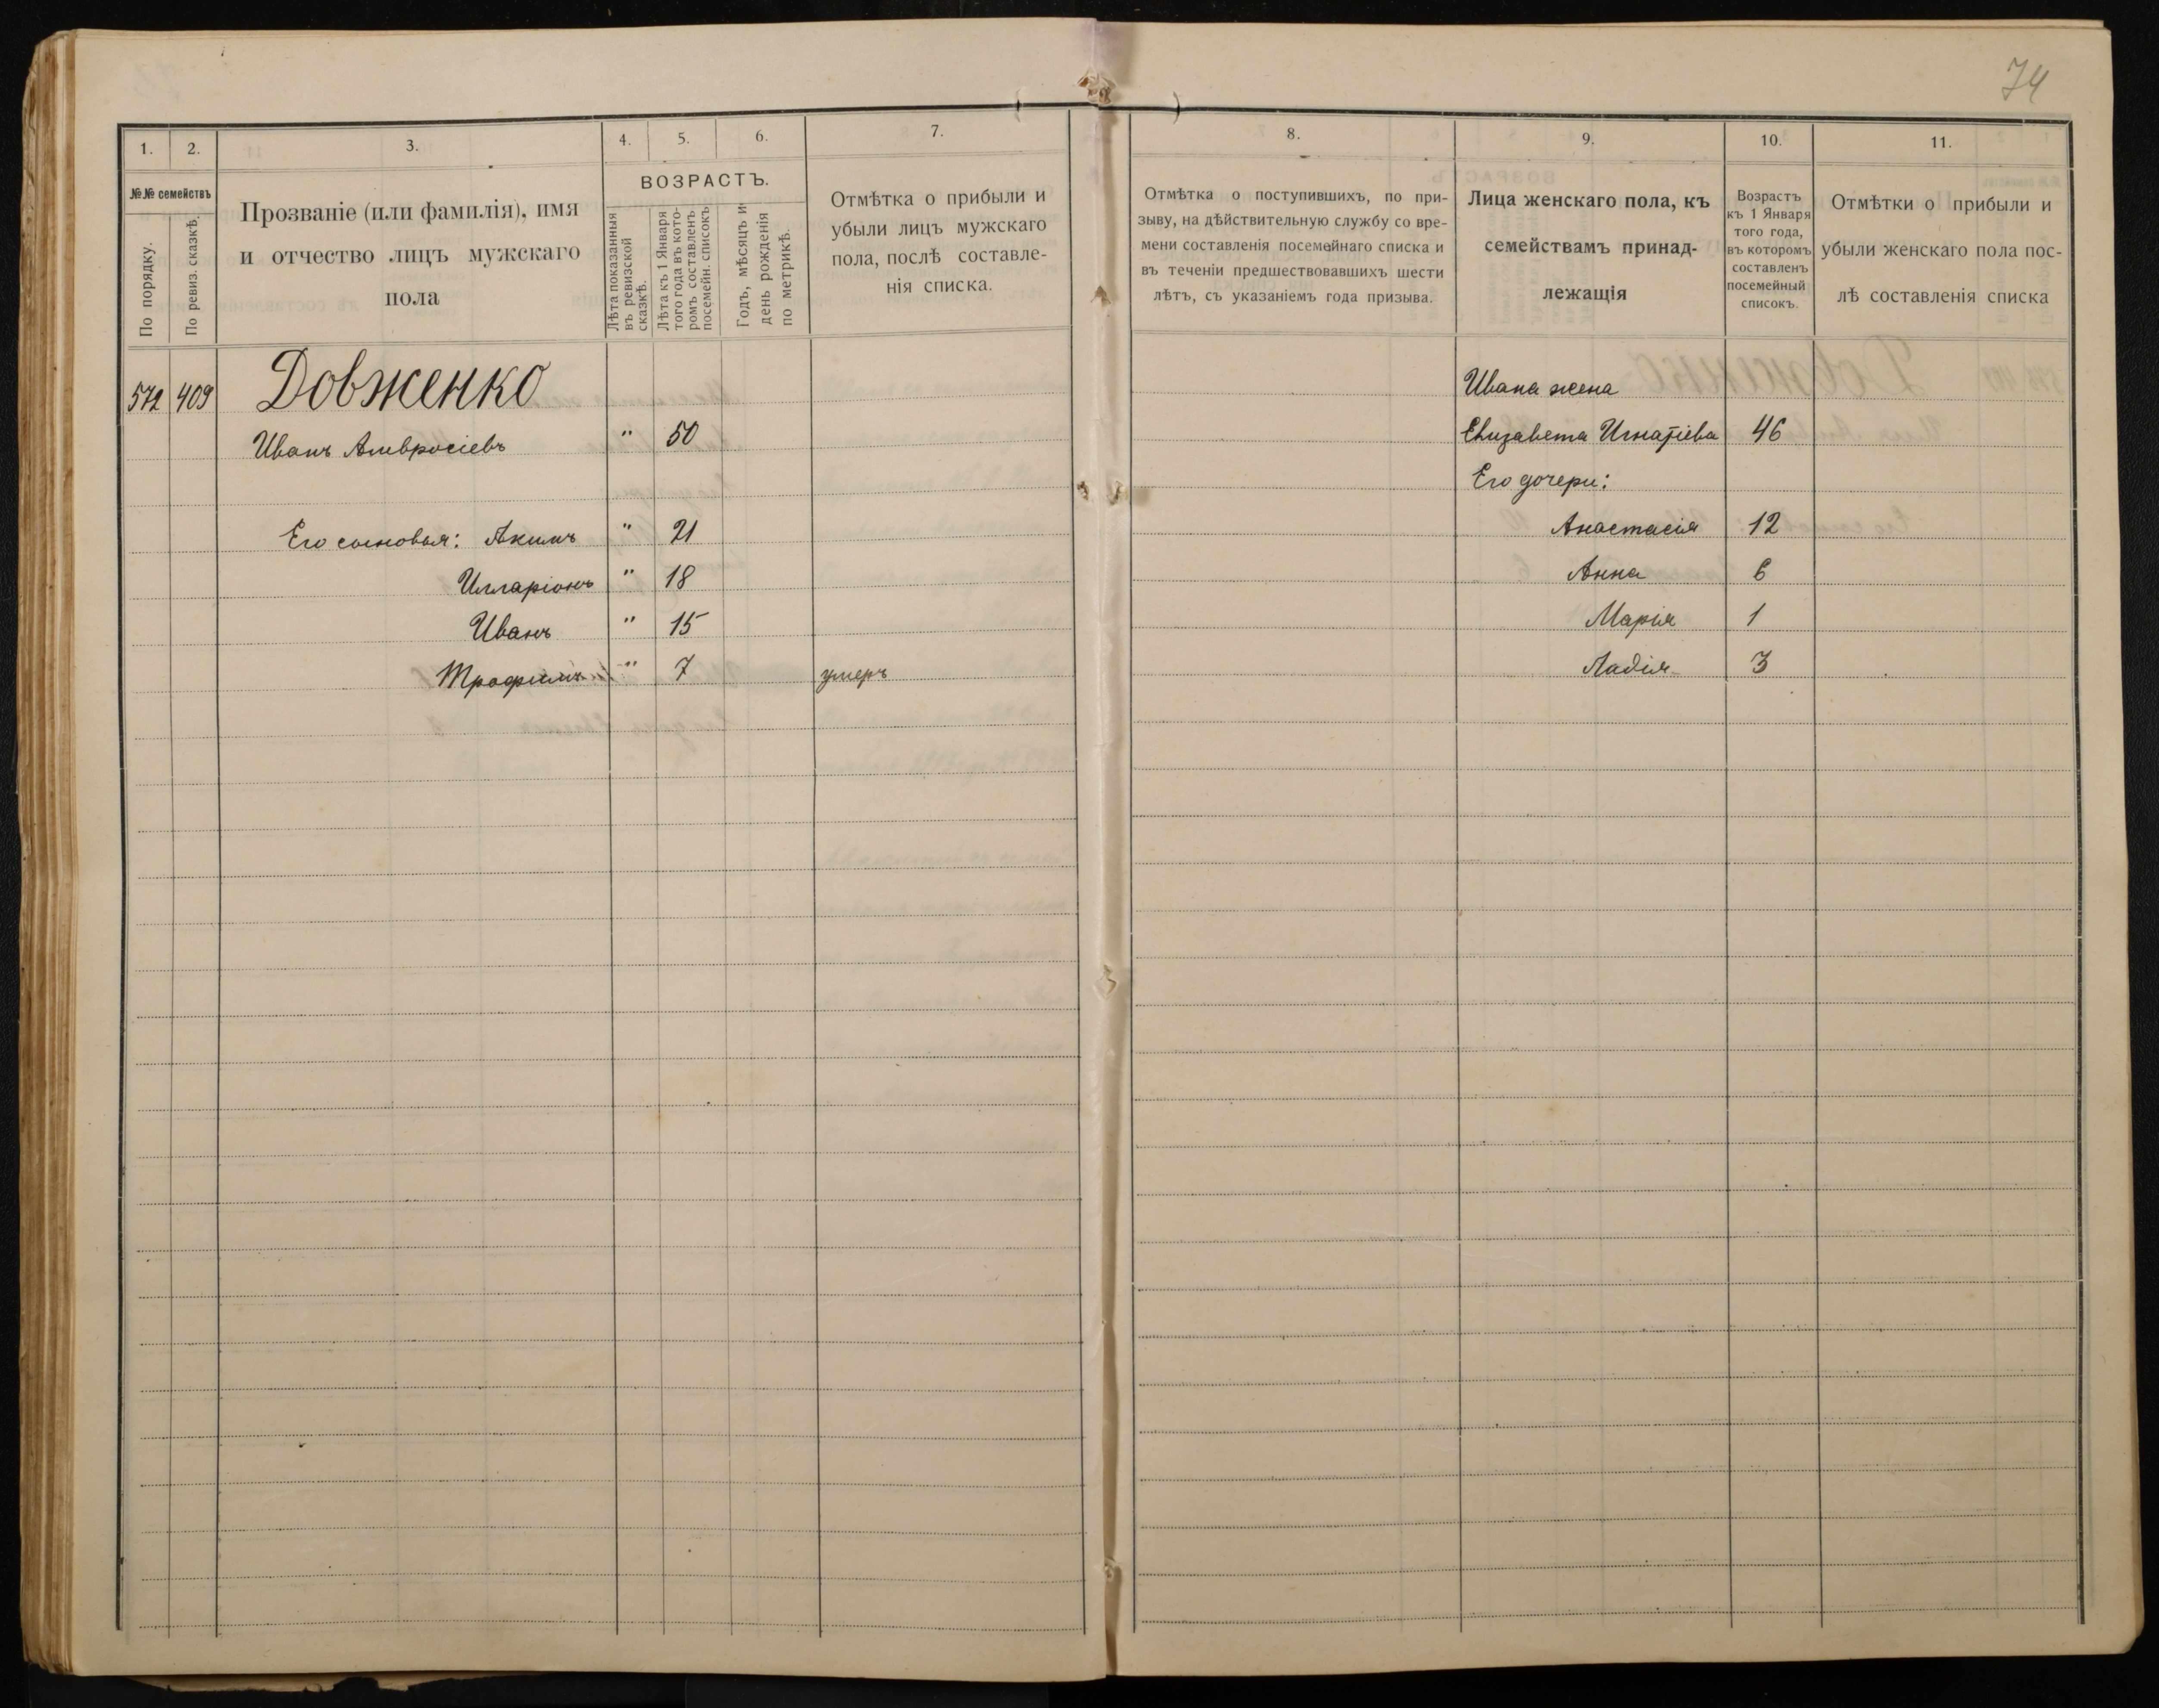 74
1. 2. 3. 4. 5. 6. 7.
№№ семействъ
По порядку.
По ревиз. сказкѣ.
Прозваніе (или фамилія), имя
и отчество лицъ мужскаго
пола
ВОЗРАСТЪ.
Лѣта показанныя
въ ревизской
сказкѣ.
Лѣта къ 1 Января
того года въ кото-
ромъ составленъ
посемейн. списокъ
Годъ, мѣсяцъ и
день рожденія
по метрикѣ.
Отмѣтка о прибыли и
убыли лицъ мужскаго
пола, послѣ составле-
нія списка.
572 409 Довженко
Иванъ Амвросіевъ " 50
Его сыновья: Акимъ " 21
Илларіонъ " 18
Иванъ " 15
Трофимъ " 7 умеръ
8. 9. 10. 11.
Отмѣтка о поступившихъ, по при-
зыву, на дѣйствительную службу со вре-
мени составленія посемейнаго списка и
въ теченіи предшествовавшихъ шести
лѣтъ, съ указаніемъ года призыва.
Лица женскаго пола, къ
семействамъ принад-
лежащія
Возрастъ
къ 1 Января
того года,
въ которомъ
составленъ
посемейный
списокъ.
Отмѣтки о прибыли и
убыли женскаго пола пос-
лѣ составленія списка
Ивана жена
Елизавета Игнатіева 46
Его дочери:
Анастасія 12
Анна 6
Марія 1
3